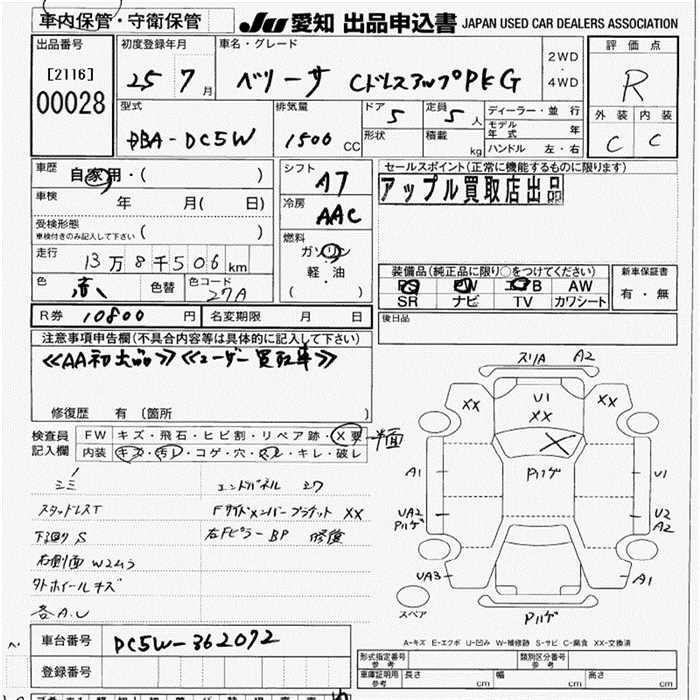 車内保管・守衛保管
JU 愛知 出品申込書 JAPAN USED CAR DEALERS ASSOCIATION
出品番号 初度登録年月 車名・グレード 2WD・4WD 評価点
[2116] 25 7月 ベリーサ CドレスアップPKG R
00028
型式 排気量 ドア 5 定員 5人 ディーラー・並行 外装 内装
DBA-DC5W 1500 CC 形状 積載 kg モデル年式 年 C C
ハンドル 左・右
車歴 自家用・( ) シフト A7 セールスポイント(正常に機能するものに限ります)
車検 年 月( 日) 冷房 AAC アップル買取店出品
受検形態 車検付きのみ記入して下さい ( )
燃料 ガソリン
走行 13万8千506km 軽・油 装備品(純正品に限り○をつけてください) 新車保証書
( ) PS PW エアB AW 有・無
色 赤 色替 色コード 27A SR ナビ TV カワシート
R券 10800 円 名変期限 月 日 後日品
注意事項申告欄(不具合内容等は具体的に記入して下さい)
≪AA初出品≫≪ユーザー買取車≫
修復歴 有 (箇所 )
検査員記入欄 FW キズ・飛石・ヒビ割・リペア跡・X要
内装 キズ・汚レ・コゲ・穴・スレ・キレ・破レ
シミ エンドパネル シワ
スタッドレスT Fサイドメンバーブラケット XX
下回りS 右Fピラー BP 修復
右側面 Wムラ
タトホイールキズ
各A.U
スリA A2
XX U1 XX XX
X
A1 Pハゲ U1
UA2 Pハゲ U2 A2
UA3 A1
スペア Pハゲ
A-キズ E-エクボ U-凹み W-補修跡 S-サビ C-腐食 XX-交換済
車台番号 DC5W-362072
登録番号
形式指定番号 参考 類別区分番号 参考
車庫証明用 参考 長さ cm 幅 cm 高さ cm